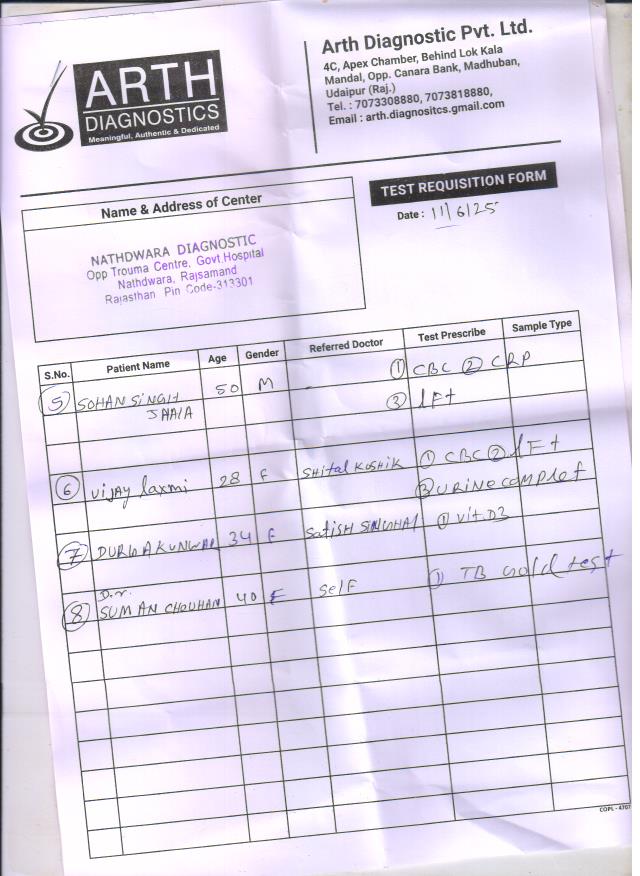 ARTH
DIAGNOSTICS
Meaningful, Authentic & Dedicated
Arth Diagnostic Pvt. Ltd.
4C, Apex Chamber, Behind Lok Kala
Mandal, Opp. Canara Bank, Madhuban,
Udaipur (Raj.)
Tel. : 7073308880, 7073818880,
Email : arth.diagnositcs.gmail.com
TEST REQUISITION FORM
Date : 11/6/25
Name & Address of Center
NATHDWARA DIAGNOSTIC
Opp Trouma Centre, Govt.Hospital
Nathdwara, Rajsamand
Rajasthan Pin Code-313301
S.No. Patient Name Age Gender Referred Doctor Test Prescribe Sample Type
5 SOHAN SINGH 50 M - ① CBC ② CRP
JHALA ③ lFt
6 vijay laxmi 28 F SHital KUSHIK ① CBC ② lFt
③ URINE complet
7 DURGA KUNWAR 34 F SatiSH SINGHAl ① Vit.D3
8 Dr. SUMAN CHOUHAN 40 F SelF ① TB gold test
COPL - 4707